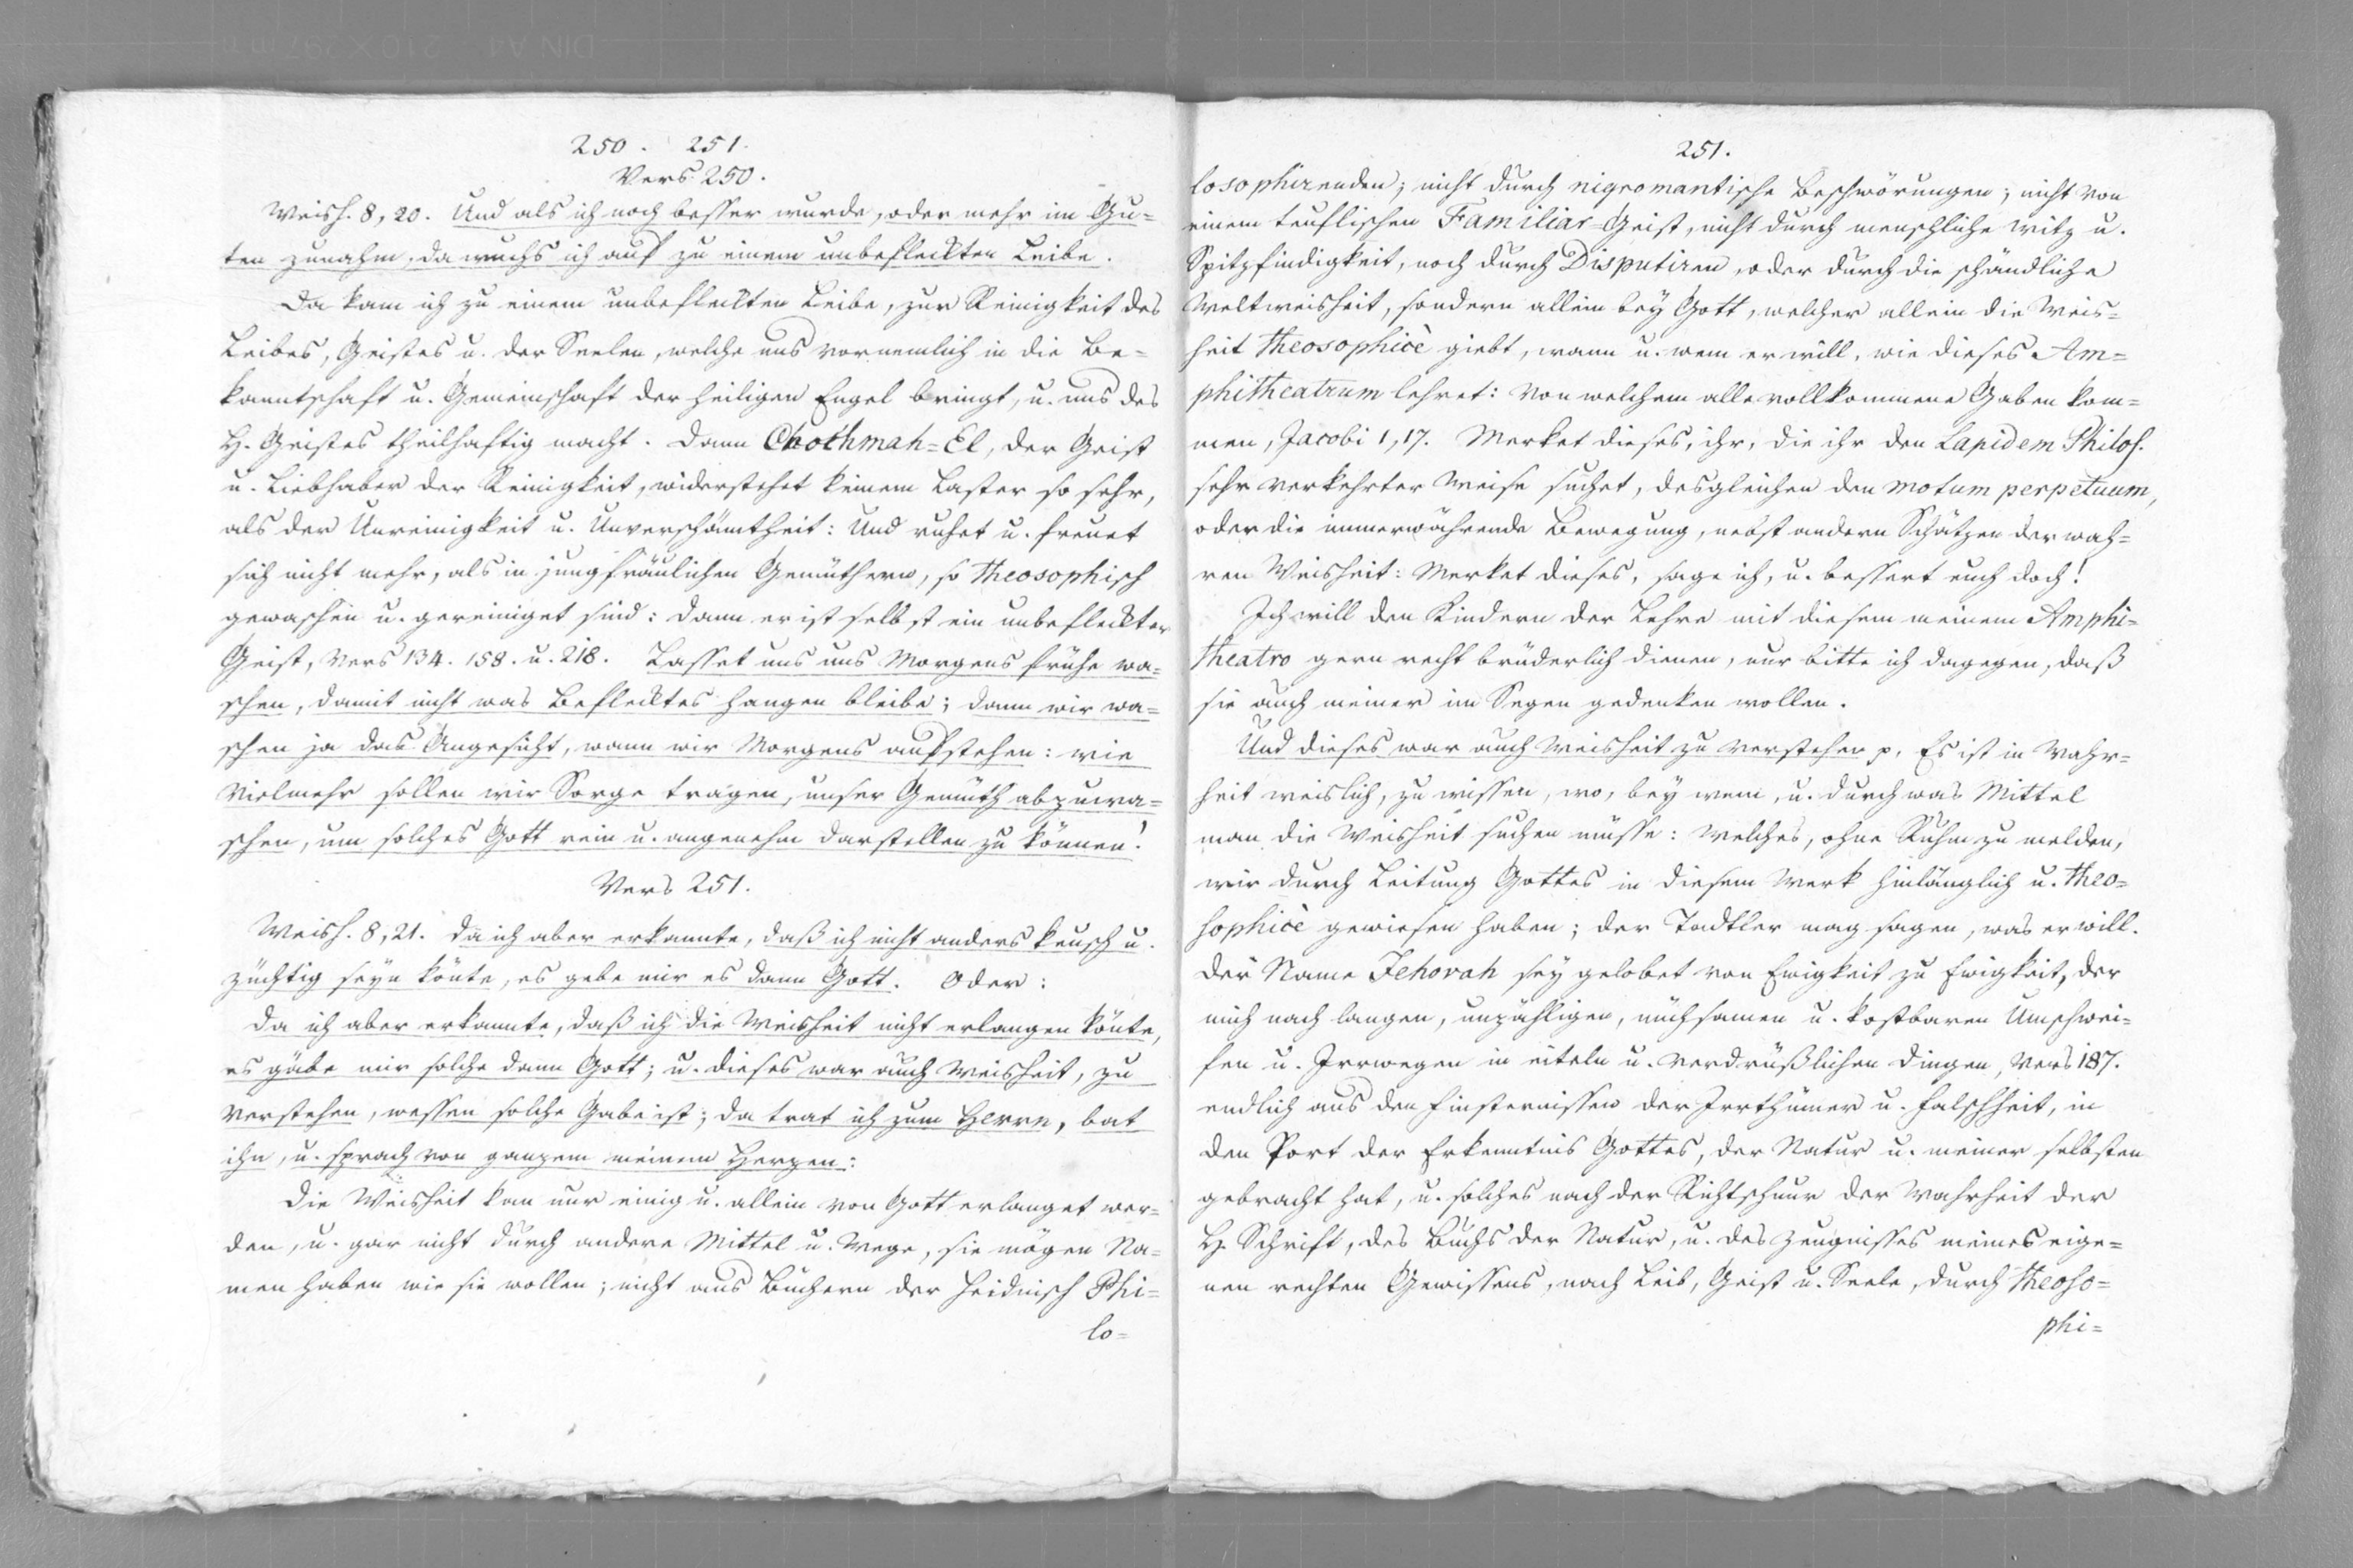 250. 251.
Vers 250.
Weish. 8, 20. Und als ich noch besser wurde, oder mehr im Gu=
ten zunahm, da wuchs ich auf zu einem unbefleckten Leibe.
Da kam ich zu einem unbefleckten Leibe, zur Reinigkeit des
Leibes, Geistes u. der Seelen, welche uns vornemlich in die Be=
kanntschaft u. Gemeinschaft der heiligen Engel bringt, u. uns des
H. Geistes theilhaftig macht. Dann Chothmah=El, der Geist
u. Liebhaber der Reinigkeit, widerstehet keinem Laster so sehr,
als der Unreinigkeit u. Unverschämtheit: Und ruhet u. freuet
sich nicht mehr, als in jungfräulichen Gemüthern, so theosophisch
gewaschen u. gereiniget sind: dann er ist selbst ein unbefleckter
Geist, Vers 134. 158. u. 218. Lasset uns uns Morgens frühe wa=
schen, damit nicht was Beflecktes hangen bleibe; dann wir wa=
schen ja das Angesicht, wann wir Morgens aufstehen: wie
vielmehr sollen wir Sorge tragen, unser Gemüth abzuwa=
schen, um solches Gott rein u. angenehm darstellen zu können!
Vers 251.
Weish. 8, 21. Da ich aber erkannte, daß ich nicht anders keusch u.
züchtig seyn könte, es gebe mir es dann Gott. Oder:
Da ich aber erkannte, daß ich die Weisheit nicht erlangen könte,
es gäbe mir solche dann Gott; u. dieses war auch Weisheit, zu
verstehen, wessen solche Gabe ist; da trat ich zum Herrn, bat
ihn, u. sprach von ganzem meinem Herzen:
Die Weisheit kan nur einig u. allein von Gott erlanget wer=
den, u. gar nicht durch andere Mittel u. Wege, sie mögen Na=
men haben wie sie wollen; nicht aus Büchern der heidnisch Phi=
lo=
251.
losophirenden; nicht durch nigromantische Beschwörungen; nicht von
einem teuflischen Familiar=Geist, nicht durch menschliche Witz u.
Spitzfindigkeit, noch durch Disputiren, oder durch die schändliche
Weltweisheit, sondern allein bey Gott, welcher allein die Weis=
heit theosophicè giebt, wann u. wem er will, wie dieses Am=
phitheatrum lehret: Von welchem alle vollkommene Gaben kom=
men, Jacobi 1, 17. Merket dieses, ihr, die ihr den Lapidem Philos.
sehr verkehrter Weise suchet, desgleichen den motum perpetuum,
oder die immerwährende Bewegung, nebst andern Schätzen der wah=
ren Weisheit: Merket dieses, sage ich, u. bessert euch doch!
Ich will den Kindern der Lehre mit diesem meinem Amphi=
theatro gern recht brüderlich dienen, nur bitte ich dagegen, daß
sie auch meiner im Segen gedenken wollen.
Und dieses war auch Weisheit zu verstehen p. Es ist in Wahr=
heit weislich, zu wissen, wo, bey wem, u. durch was Mittel
man die Weisheit suchen müsse: Welches, ohne Ruhm zu melden,
wir durch Leitung Gottes in diesem Werk hinlänglich u. theo=
sophicè gewiesen haben; der Tadtler mag sagen, was er will.
Der Name Jehovah sey gelobet von Ewigkeit zu Ewigkeit, der
mich nach langen, unzähligen, mühsamen u. kostbaren Umschwei=
fen u. Irrwegen in eiteln u. verdrüßlichen Dingen, Vers 187.
endlich aus den Finsternissen der Irrthümer u. Falschheit, in
den Port der Erkenntnis Gottes, der Natur u. meiner selbsten
gebracht hat, u. solches nach der Richtschnur der Wahrheit der
H. Schrift, des Buchs der Natur, u. des Zeugnisses meines eige=
nen rechten Gewissens, nach Leib, Geist u. Seele, durch theoso=
phi=